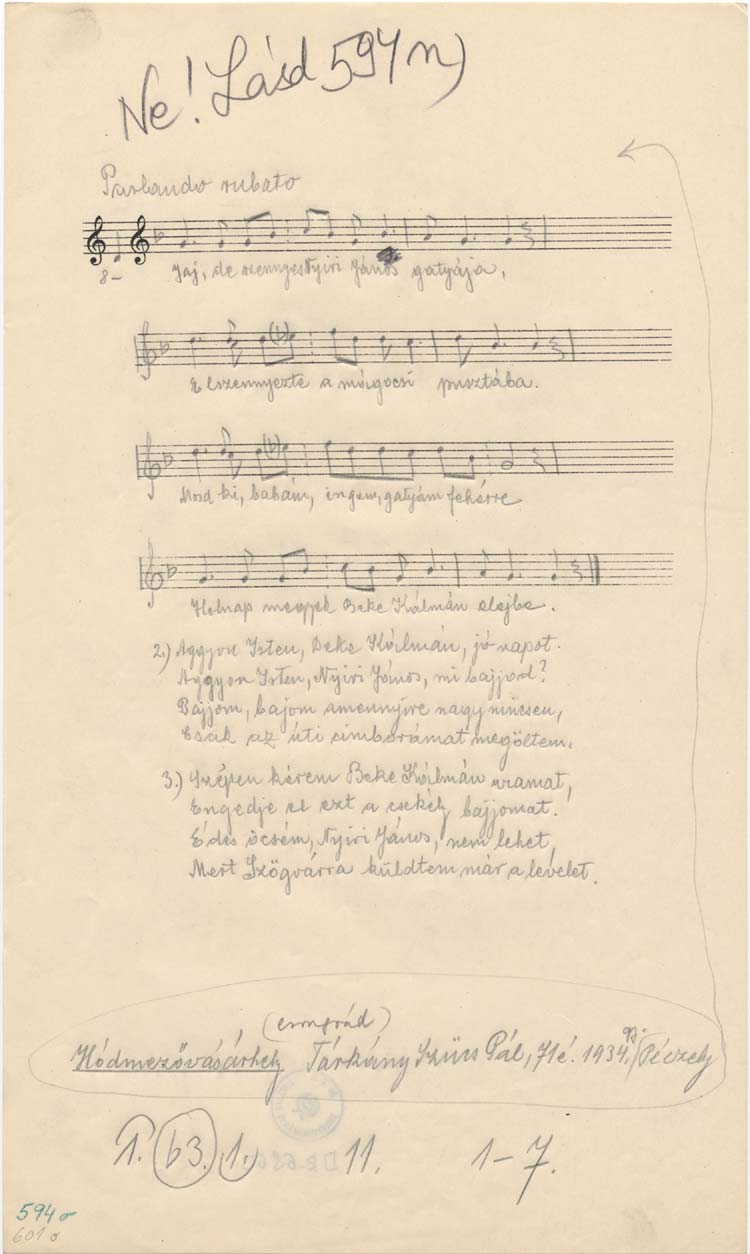 Ne! Lásd 594n)
Parlando rubato
8-
Jaj, de szennyes Nyiri János gatyája,
Elszennyezte a mágocsi pusztába.
Mosd ki, babám, ingem, gatyám fehérre
Holnap megyek Beke Kálmán elejbe.
2.) Aggyon Isten, Beke Kálmán, jó napot.
Aggyon Isten, Nyiri János, mi bajjod?
Bajjom, bajom amennyire nagy nincsen,
Csak az úti cimborámat megöltem.
3.) Szépen kérem Beke Kálmán uramat,
Engedje el ezt a csekély bajjomat.
Édes öcsém, Nyiri János, nem lehet,
Mert Szögvárra küldtem már a levelet.
(Csongrád)
Hódmezővásárhely Tárkány Szücs Pál, 71é. 1934. Péczely
63. 1. 11. 1-7.
594 o
601 o